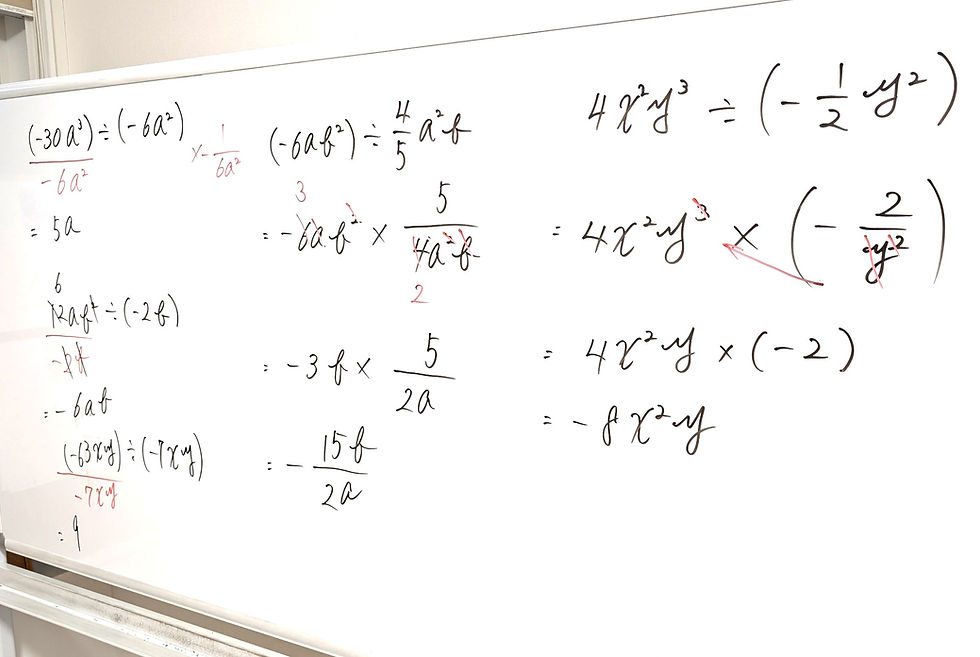 (-30a³)÷(-6a²)
-6a²
×-1/6a²
= 5a
6
12ab²÷(-2b)
-2b
= -6ab
(-63xy)÷(-7xy)
-7xy
= 9
(-6ab²)÷4/5 a²b
3
= -6ab² × 5/4a²b
2
= -3b × 5/2a
= -15b/2a
4x²y³ ÷ (-1/2 y²)
= 4x²y³ × (-2/y²)
= 4x²y × (-2)
= -8x²y